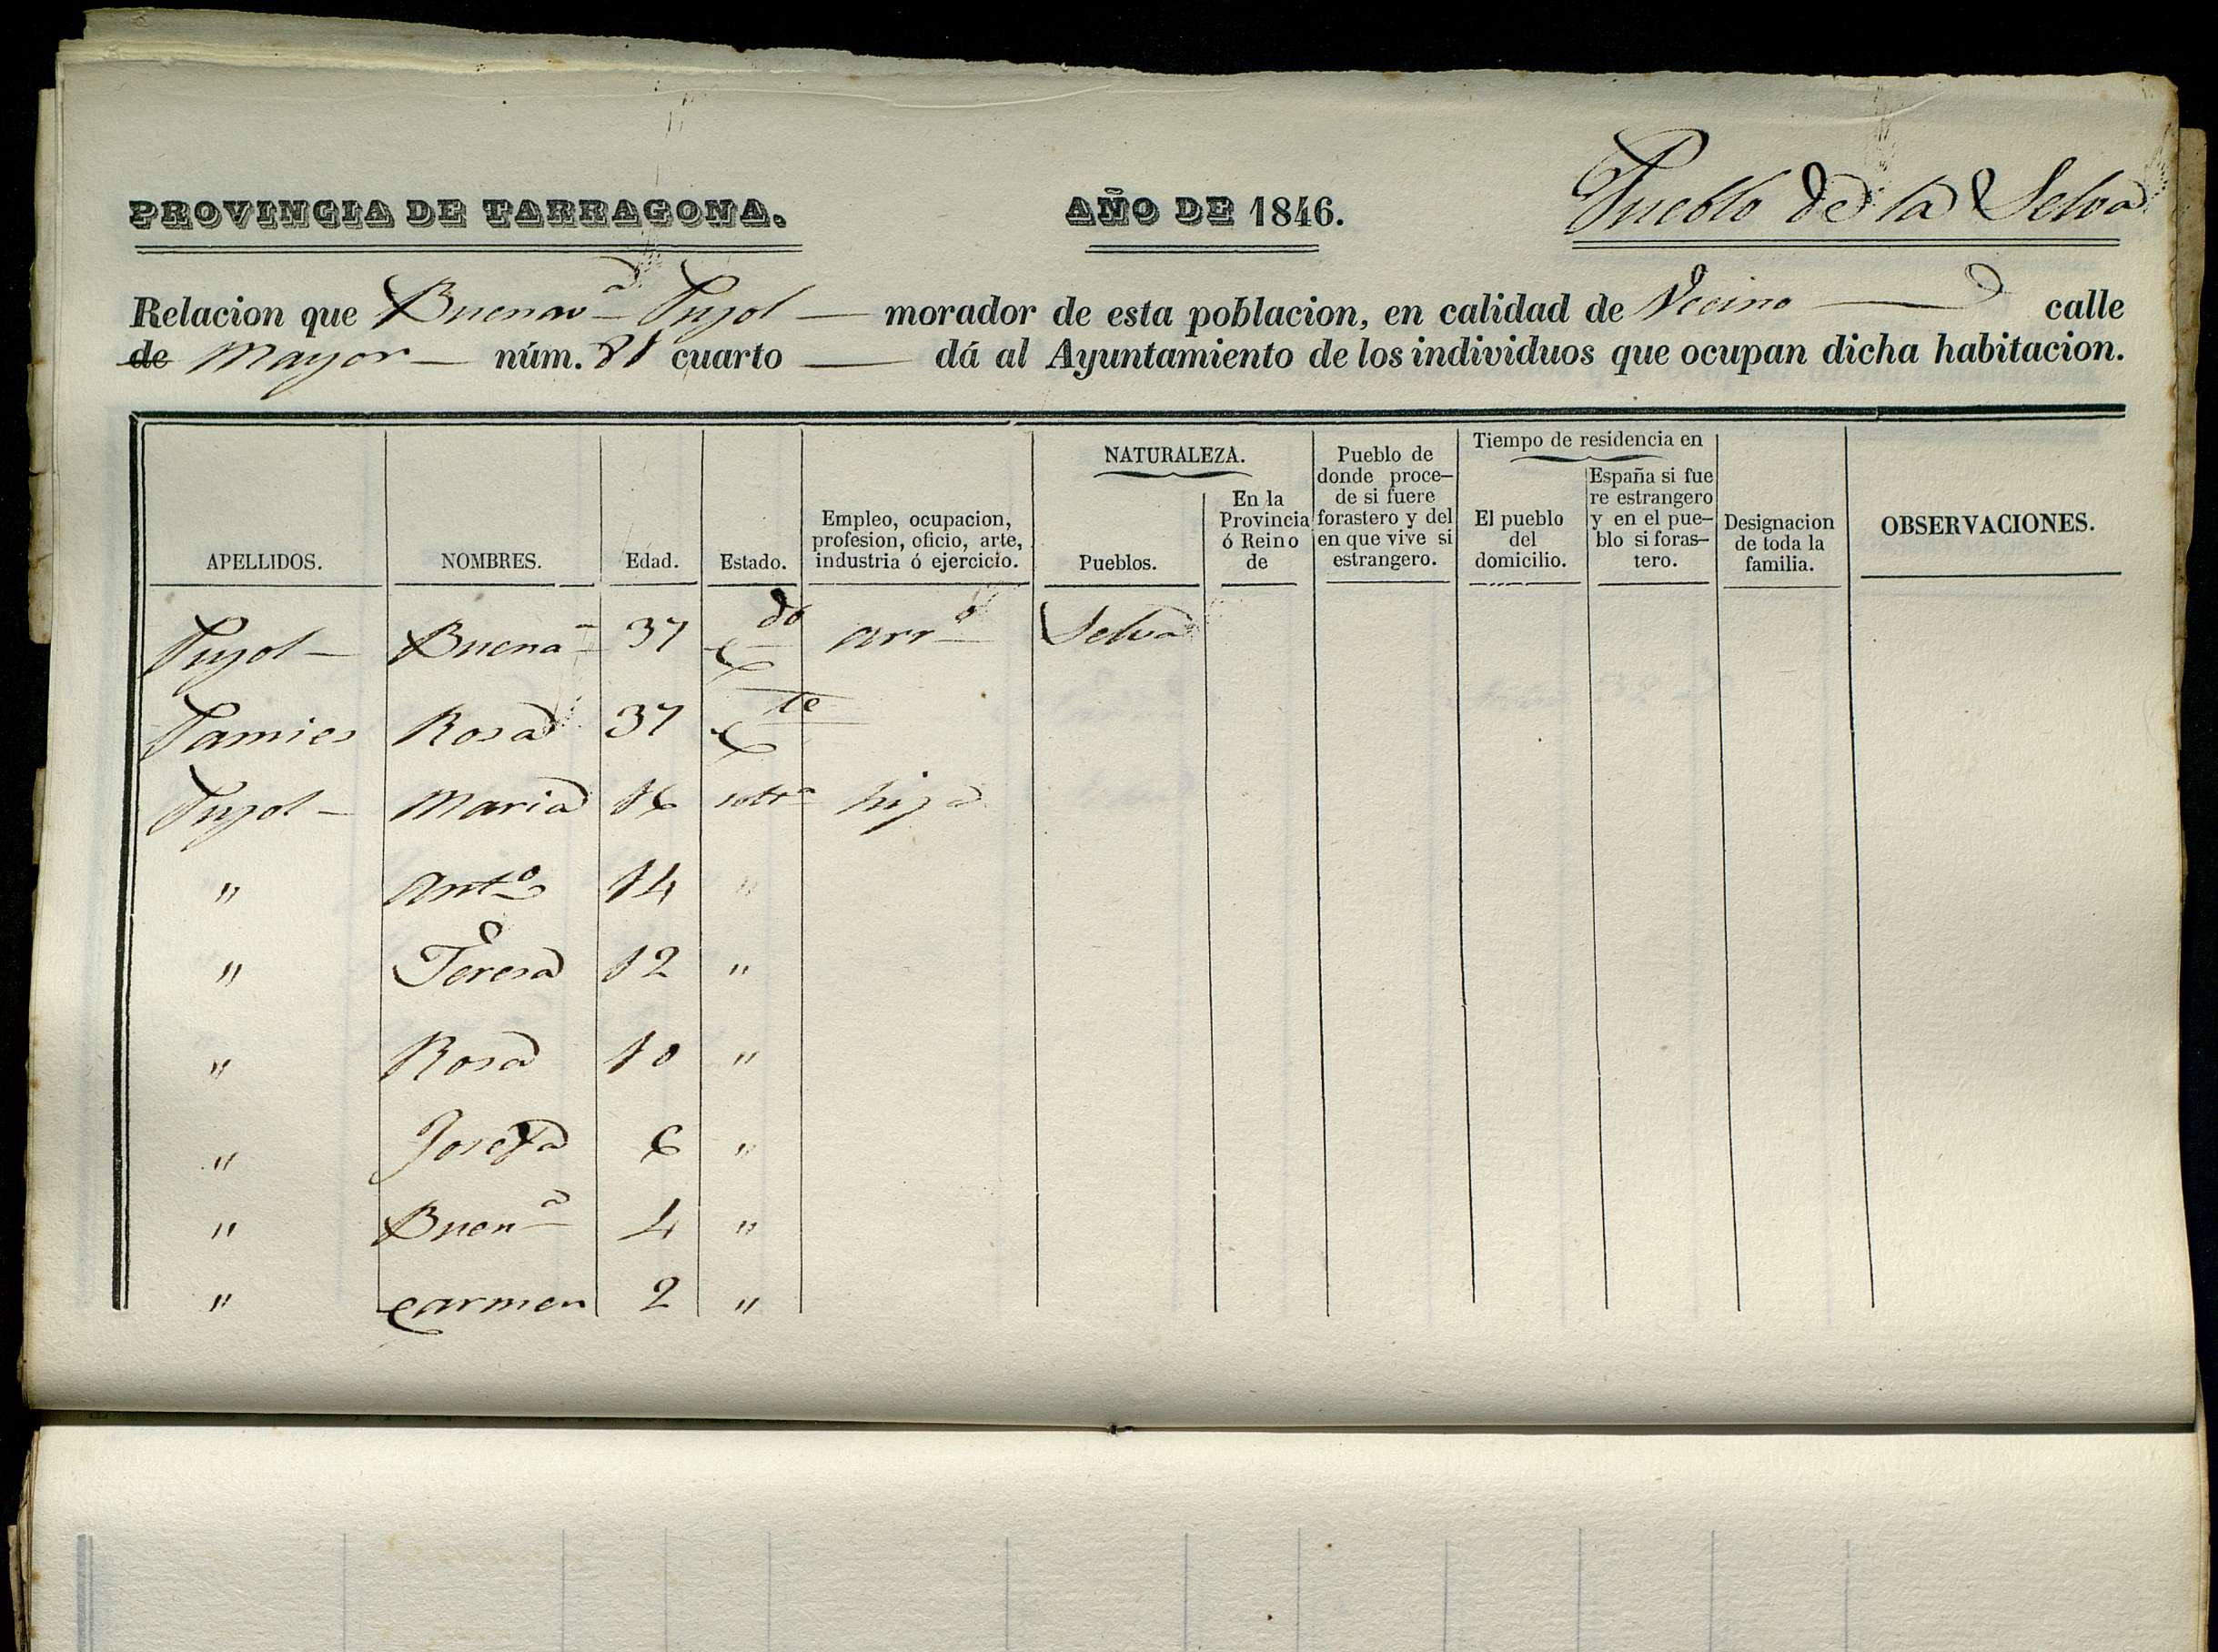 PROVINCIA DE TARRAGONA. AÑO DE 1846. Pueblo de la Selva
Relacion que Buenavª Pujol — morador de esta poblacion, en calidad de Vecino — calle
de Mayor — núm. 21 cuarto — dá al Ayuntamiento de los individuos que ocupan dicha habitacion.
APELLIDOS.
NOMBRES.
Edad.
Estado.
Empleo, ocupacion,
profesion, oficio, arte,
industria ó ejercicio.
NATURALEZA.
Pueblos.
En la
Provincia
ó Reino
de
Pueblo de
donde proce–
de si fuere
forastero y del
en que vive si
estrangero.
Tiempo de residencia en
El pueblo
del
domicilio.
España si fue
re estrangero
y en el pue–
blo si foras–
tero.
Designacion
de toda la
familia.
OBSERVACIONES.
Pujol — Buenaª 37 Cdo arrº Selva
Tamies Rosa 37 Cte
Pujol — Maria 16 soltª hija
" Antº 14 "
" Teresa 12 "
" Rosa 10 "
" Josefa 6 "
" Buenª 4 "
" Carmen 2 "